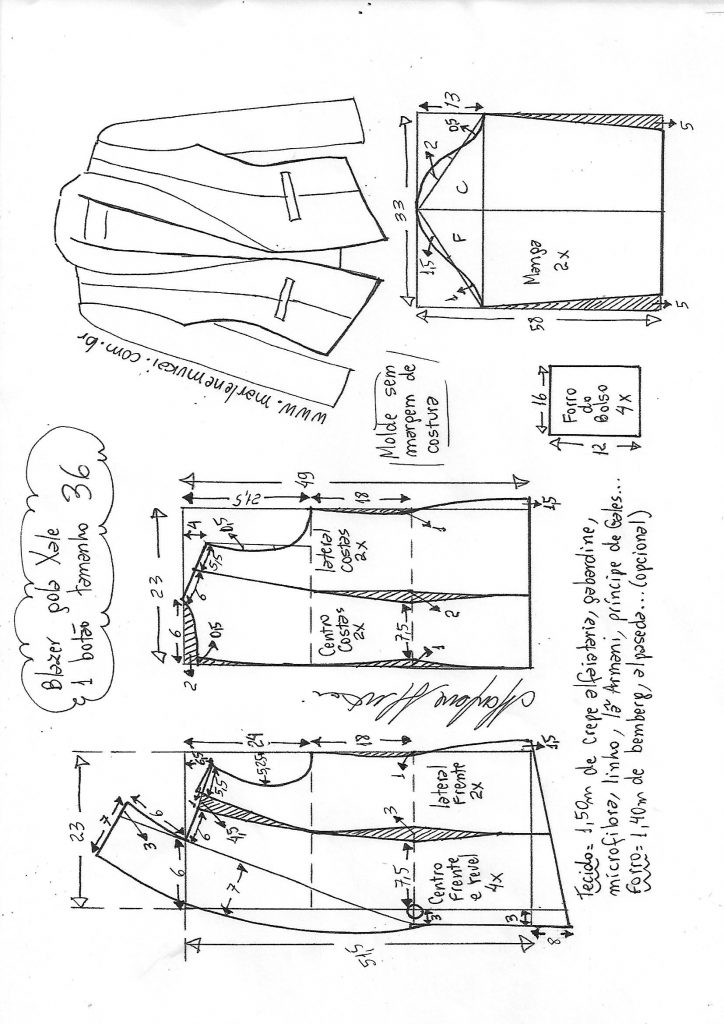 Blazer gola xale
1 botão tamanho 36
www.marlenemukai.com.br
Molde sem
margem de
costura
33
13
2
0,5
1,5
1
F
C
Manga
2x
58
5
5
16
Forro
do
Bolso
4x
12
23
4
21,5
49
6
6
5,5
0,5
0,5
2
18
lateral
costas
2x
Centro
Costas
2x
7,5
1
2
1
1,5
23
7
6
3
6
6
7
24
5,5
4,5
18
lateral
Frente
2x
Centro
Frente
e revel
4x
7,5
3
1
3
3
1,5
51,5
8
Tecido= 1,50m de crepe alfaiataria, gabardine,
microfibra, linho, lã Armani, príncipe de Gales...
Forro= 1,40m de bemberg, alpaseda... (opcional)